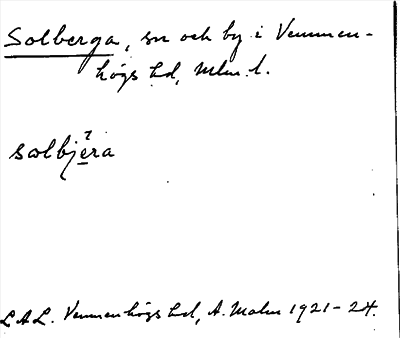 Solberga, sn och by i Vemmen-
högs hd, Mlm. l.
sœlbjera
?
L.A.L. Vemmenhögs hd, A. Malm 1921-24.